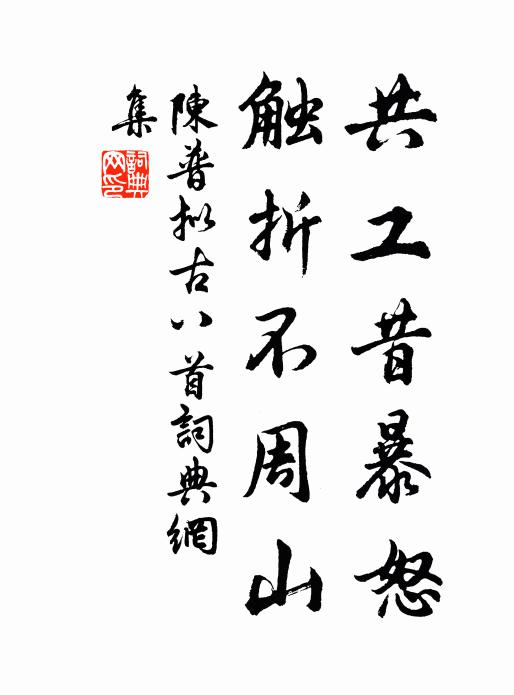 共工昔暴怒
触折不周山
陳普拟古八首詞典網
集
詞典網印